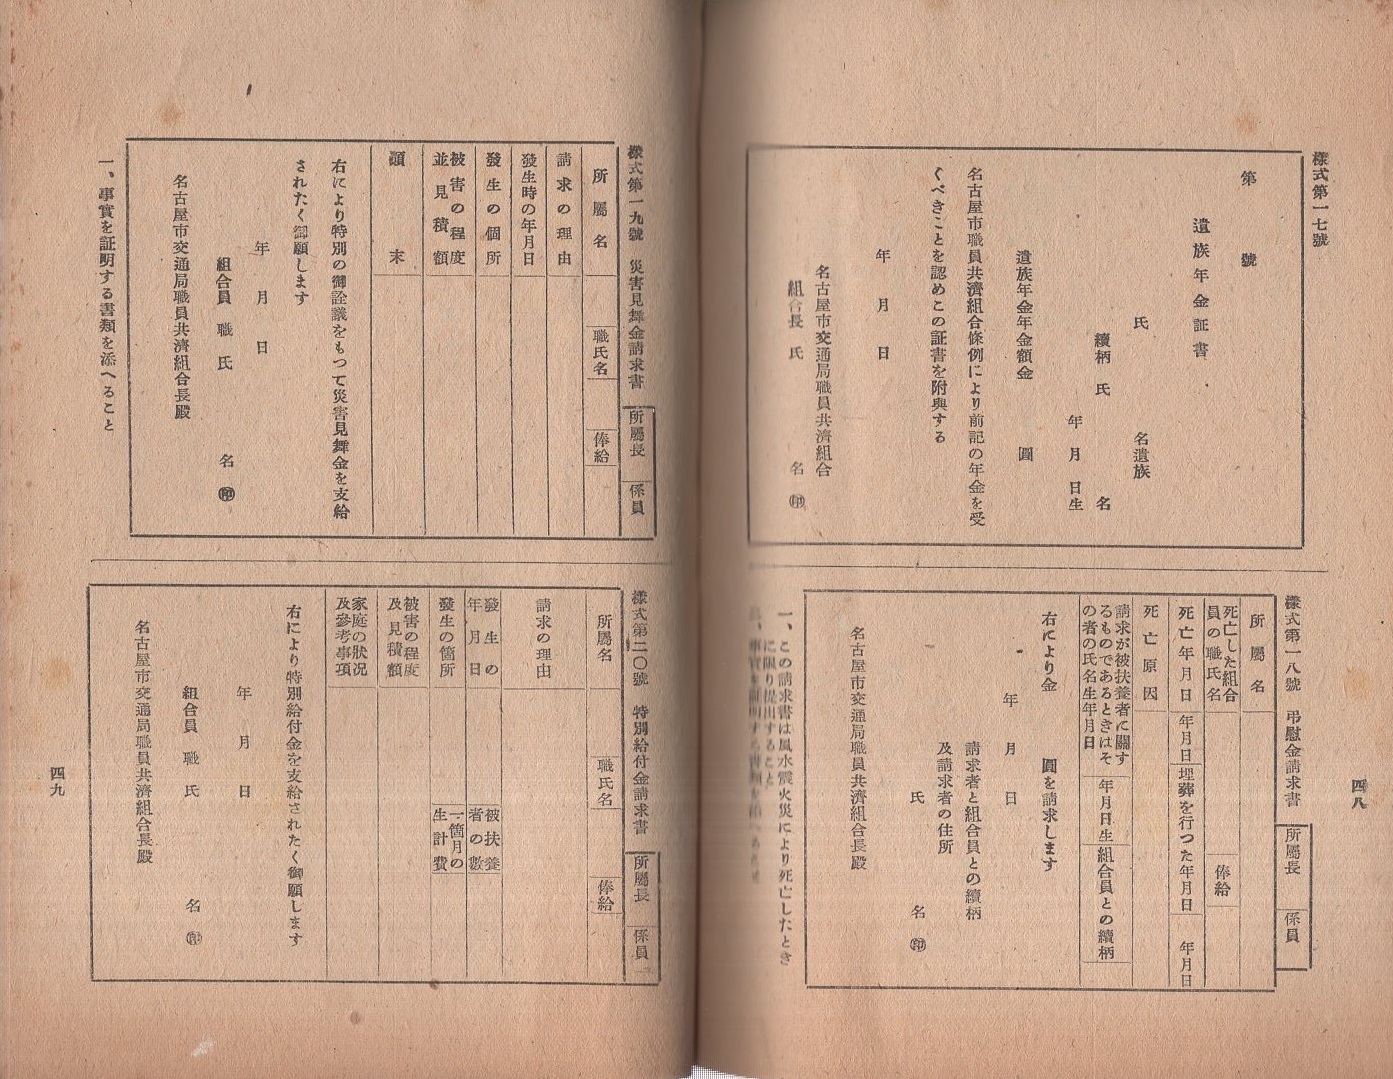 樣式第一七號
第　號
遺族年金証書
氏　名遺族
續柄　氏　名
年　月　日生
遺族年金年金額金　圓
名古屋市職員共濟組合條例により前記の年金を受
くべきことを認めこの証書を附與する
年　月　日
名古屋市交通局職員共濟組合
組合長　氏　名㊞
樣式第一八號　弔慰金請求書
所屬長　係員
所屬名
死亡した組合
員の職氏名
俸給
死亡年月日　年月日　埋葬を行つた年月日　年月日
死亡原因
請求が被扶養者に關す
るものであるときはそ
の者の氏名生年月日
年月日生　組合員との續柄
右により金　圓を請求します
年　月　日
請求者と組合員との續柄
及請求者の住所
氏　名㊞
名古屋市交通局職員共濟組合長殿
一、この請求書は風水震火災により死亡したとき
に限り提出すること
四八
樣式第一九號　災害見舞金請求書
所屬長　係員
所屬名　職氏名　俸給
請求の理由
發生時の年月日
發生の個所
被害の程度
並見積額
顚末
右により特別の御詮議をもつて災害見舞金を支給
されたく御願します
年　月　日
組合員　職　氏　名㊞
名古屋市交通局職員共濟組合長殿
一、事實を証明する書類を添へること
樣式第二〇號　特別給付金請求書
所屬長　係員
所屬名　職氏名　俸給
請求の理由
發生の
年月日
被扶養
者の數
發生の箇所
一箇月の
生計費
被害の程度
及見積額
家庭の狀況
及參考事項
右により特別給付金を支給されたく御願します
年　月　日
組合員　職　氏　名㊞
名古屋市交通局職員共濟組合長殿
四九